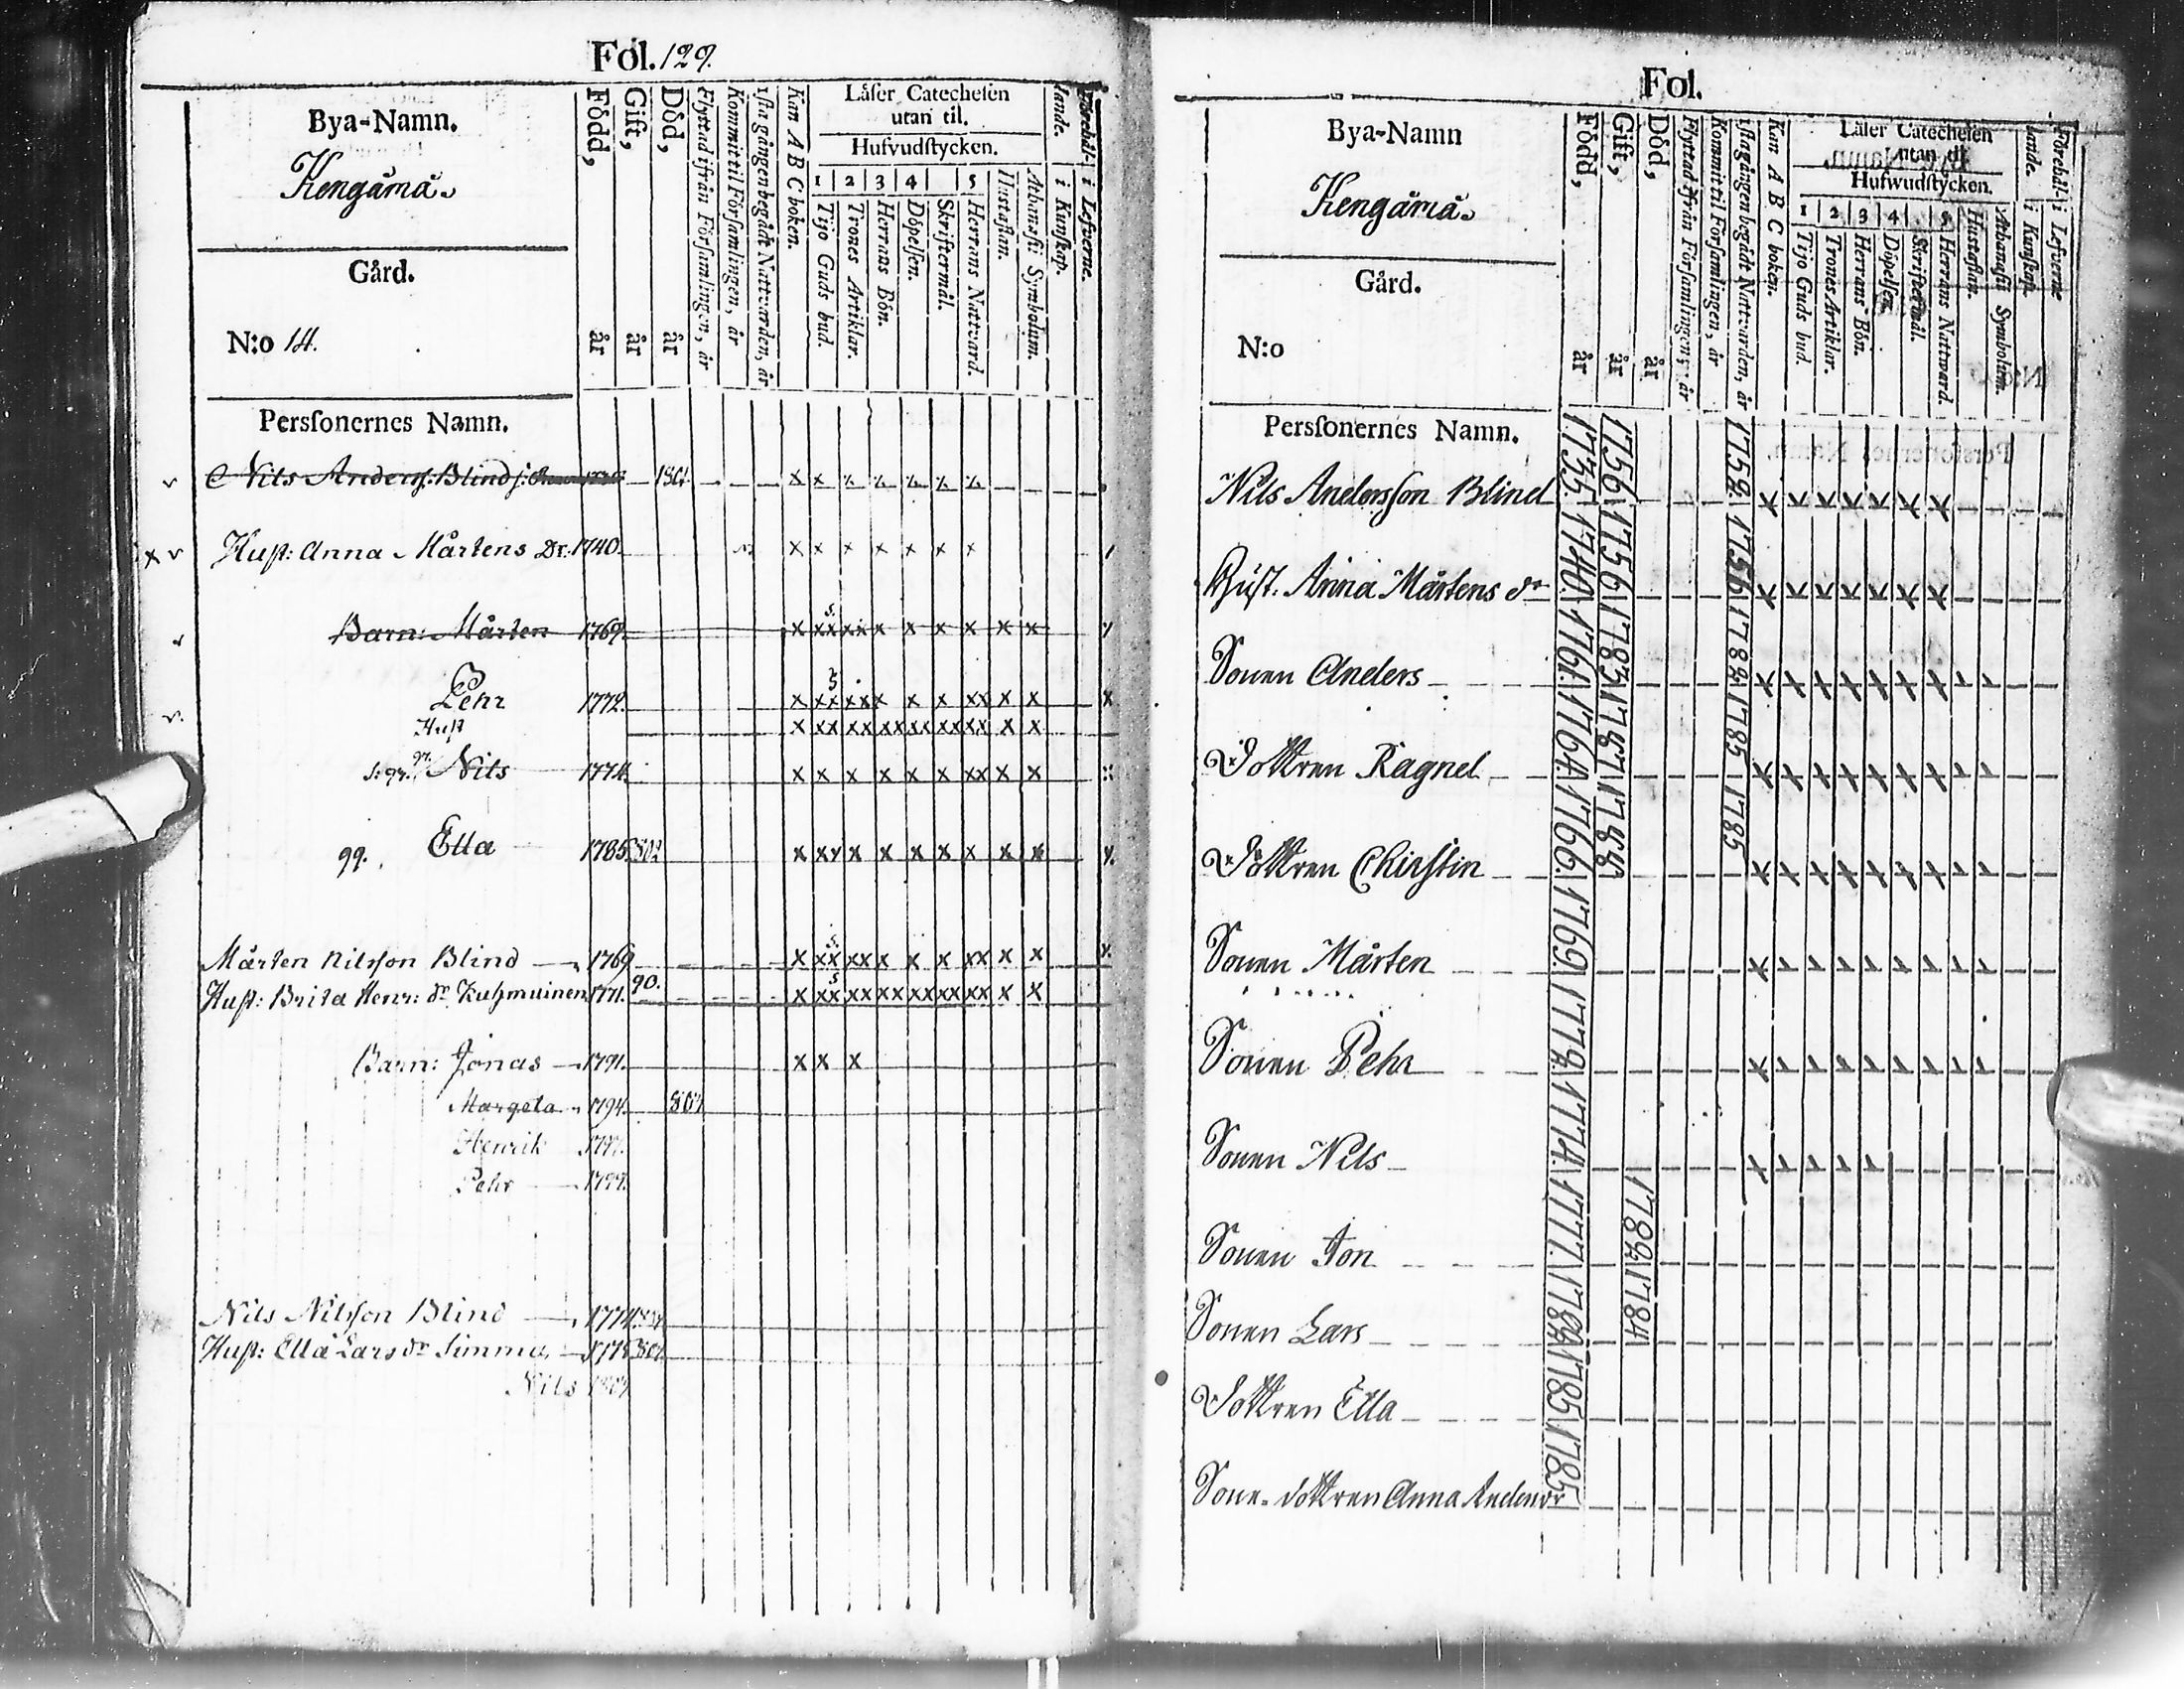 Fol. 129.
Bya-Namn.
Kengämä.
Gård.
N:o 14.
Persſonernes Namn.
Född, år
Gift, år
Död, år
Flyttad ifrån Förſamlingen, år
Kommit til Förſamlingen, år
1ſta gången begådt Nattvarden, år
Kan A B C boken.
Läſer Catecheſen
utan til.
Hufvudſtycken.
1 2 3 4 5
Tijo Guds bud.
Trones Artiklar.
Herrans Bön.
Döpelſen.
Skriftermål.
Herrans Nattvard.
Huſtaflan.
Athanaſii Symbolum.
Förehål-lande.
i Kunſkap.
i Lefverne.
v Nils Anderſ: Blind 1801 x x x x x x x
x v Huſt: Anna Mårtens Dr. 1740. x x x x x x x
v Barn: Mårten 1769. 5. x xx xx x x x x x x
Pehr 1772. 5 x xx xx x x x xx x x x
v. Huſt x xx xx xx xx xx xx x x
Nils 1774. x x x x x x xx x x
99. Ella 1785. 802 x xx x x x x x x x
Mårten Nilsſon Blind 1769 5. x xx xx x x x xx x x x
Huſt: Brita Henr: dr Kuhmuinen 1771. 90. 5 x xx xx xx xx xx xx x x
Barn: Jonas 1791. x x x
Margeta 1794. 807
Henrik 1797.
Pehr 1799.
Nils Nilsſon Blind 1774.
Huſt: Ella Lars dr Simma,
Nils
Fol.
Bya-Namn
Kengämä.
Gård.
N:o
Persſonernes Namn.
Född, år
Gift, år
Död, år
Flyttad ifrån Förſamlingen, år
Kommit til Förſamlingen, år
1ſta gången begådt Nattvarden, år
Kan A B C boken.
Läſer Catecheſen
utan til.
Hufwudſtycken.
1 2 3 4 5
Tijo Guds bud.
Trones Artiklar.
Herrans Bön.
Döpelſen.
Skriftermål.
Herrans Nattvard.
Huſtaflan.
Athanaſii Symbolum.
Förehål-lande.
i Kunſkap.
i Lefverne
Nils Andersſon Blind 1735. 1756 1752. x x x x x x x
Huſt. Anna Mårtens dr 1740. 1756 1756 x x x x x x x
Sonen Anders 1761. 1783 1782
Dottren Ragnel 1764. 1787 1785
Dottren Chirſtin 1766. 1788 1785
Sonen Mårten 1769.
Sonen Pehr 1772.
Sonen Nils 1774.
Sonen Jon 1777. 1782
Sonen Lars 1782 1784
Dottren Ella 1785
Sone-dottren Anna Andersdr 1785